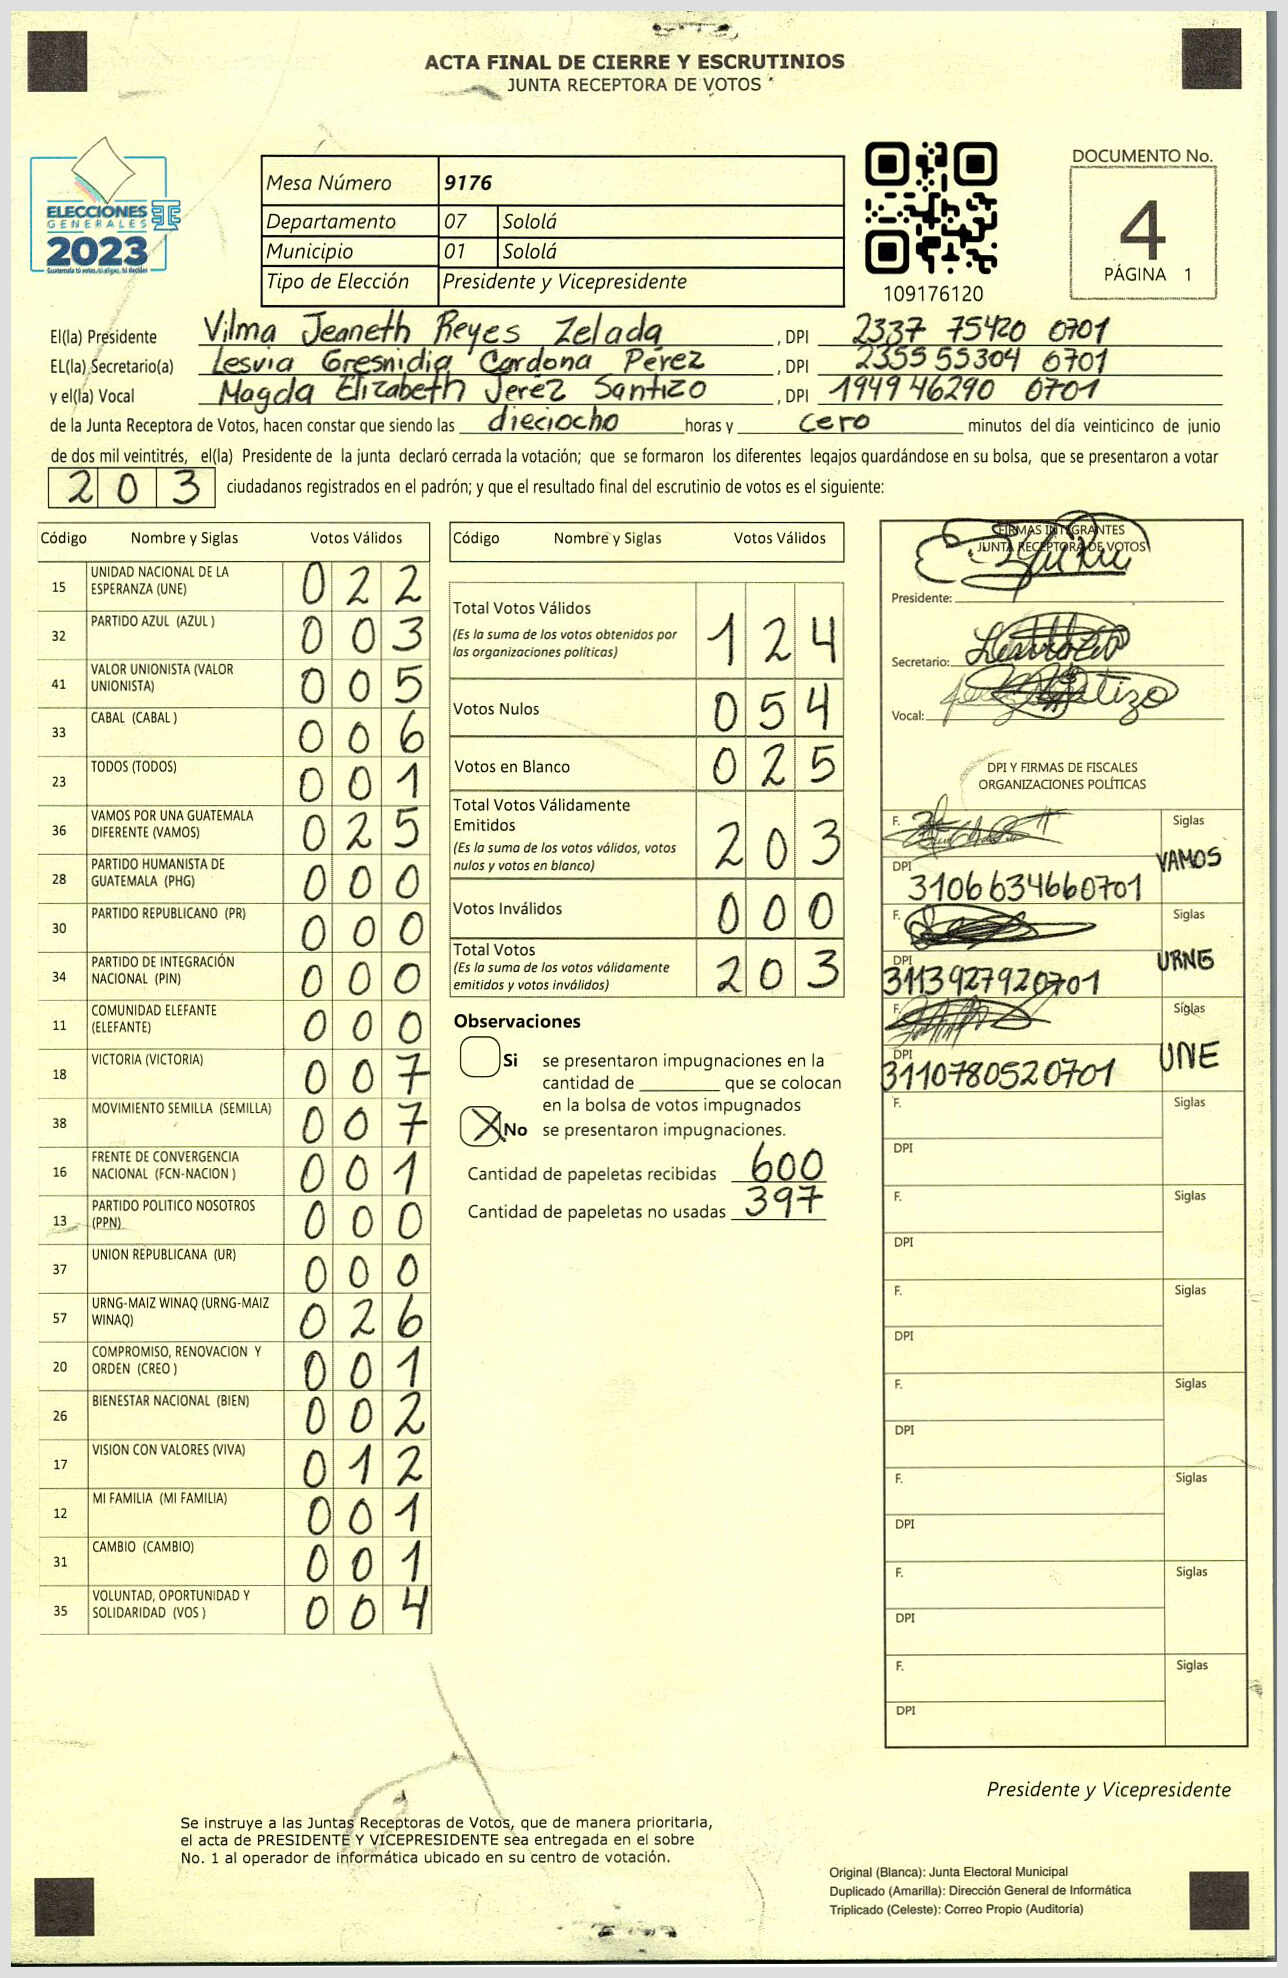 ACTA FINAL DE CIERRE Y ESCRUTINIOS
JUNTA RECEPTORA DE VOTOS
ELECCIONES
GENERALES
2023
Mesa Número 9176
Departamento 07 Sololá
Municipio 01 Sololá
Tipo de Elección Presidente y Vicepresidente
109176120
DOCUMENTO No.
4
PÁGINA 1
El(la) Presidente Vilma Jeaneth Reyes Zelada, DPI 2337 75420 0701
EL(la) Secretario(a) Lesvia Gresnidia Cardona Pérez, DPI 2355 55304 0701
y el(la) Vocal Magda Elizabeth Jeréz Santizo, DPI 1949 46290 0701
de la Junta Receptora de Votos, hacen constar que siendo las dieciocho horas y cero minutos del día veinticinco de junio
de dos mil veintitrés, el(la) Presidente de la junta declaró cerrada la votación; que se formaron los diferentes legajos guardándose en su bolsa, que se presentaron a votar
203 ciudadanos registrados en el padrón; y que el resultado final del escrutinio de votos es el siguiente:
Código Nombre y Siglas Votos Válidos
15 UNIDAD NACIONAL DE LA ESPERANZA (UNE) 022
32 PARTIDO AZUL (AZUL ) 003
41 VALOR UNIONISTA (VALOR UNIONISTA) 005
33 CABAL (CABAL ) 006
23 TODOS (TODOS) 001
36 VAMOS POR UNA GUATEMALA DIFERENTE (VAMOS) 025
28 PARTIDO HUMANISTA DE GUATEMALA (PHG) 000
30 PARTIDO REPUBLICANO (PR) 000
34 PARTIDO DE INTEGRACIÓN NACIONAL (PIN) 000
11 COMUNIDAD ELEFANTE (ELEFANTE) 000
18 VICTORIA (VICTORIA) 007
38 MOVIMIENTO SEMILLA (SEMILLA) 007
16 FRENTE DE CONVERGENCIA NACIONAL (FCN-NACION ) 001
13 PARTIDO POLITICO NOSOTROS (PPN) 000
37 UNION REPUBLICANA (UR) 000
57 URNG-MAIZ WINAQ (URNG-MAIZ WINAQ) 026
20 COMPROMISO, RENOVACION Y ORDEN (CREO ) 001
26 BIENESTAR NACIONAL (BIEN) 002
17 VISION CON VALORES (VIVA) 012
12 MI FAMILIA (MI FAMILIA) 001
31 CAMBIO (CAMBIO) 001
35 VOLUNTAD, OPORTUNIDAD Y SOLIDARIDAD (VOS ) 004
Código Nombre y Siglas Votos Válidos
Total Votos Válidos 124
(Es la suma de los votos obtenidos por
las organizaciones políticas)
Votos Nulos 054
Votos en Blanco 025
Total Votos Válidamente
Emitidos 203
(Es la suma de los votos válidos, votos
nulos y votos en blanco)
Votos Inválidos 000
Total Votos 203
(Es la suma de los votos válidamente
emitidos y votos inválidos)
Observaciones
Si se presentaron impugnaciones en la
cantidad de ________ que se colocan
en la bolsa de votos impugnados
X No se presentaron impugnaciones.
Cantidad de papeletas recibidas 600
Cantidad de papeletas no usadas 397
FIRMAS INTEGRANTES
JUNTA RECEPTORA DE VOTOS
Presidente:
Secretario:
Vocal:
DPI Y FIRMAS DE FISCALES
ORGANIZACIONES POLÍTICAS
F. Siglas
VAMOS
DPI
3106634660701
F. Siglas
URNG
DPI
3113927920701
F. Siglas
UNE
DPI
3110780520701
F. Siglas
DPI
F. Siglas
DPI
F. Siglas
DPI
F. Siglas
DPI
F. Siglas
DPI
F. Siglas
DPI
F. Siglas
DPI
Presidente y Vicepresidente
Se instruye a las Juntas Receptoras de Votos, que de manera prioritaria,
el acta de PRESIDENTE Y VICEPRESIDENTE sea entregada en el sobre
No. 1 al operador de informática ubicado en su centro de votación.
Original (Blanca): Junta Electoral Municipal
Duplicado (Amarilla): Dirección General de Informática
Triplicado (Celeste): Correo Propio (Auditoría)